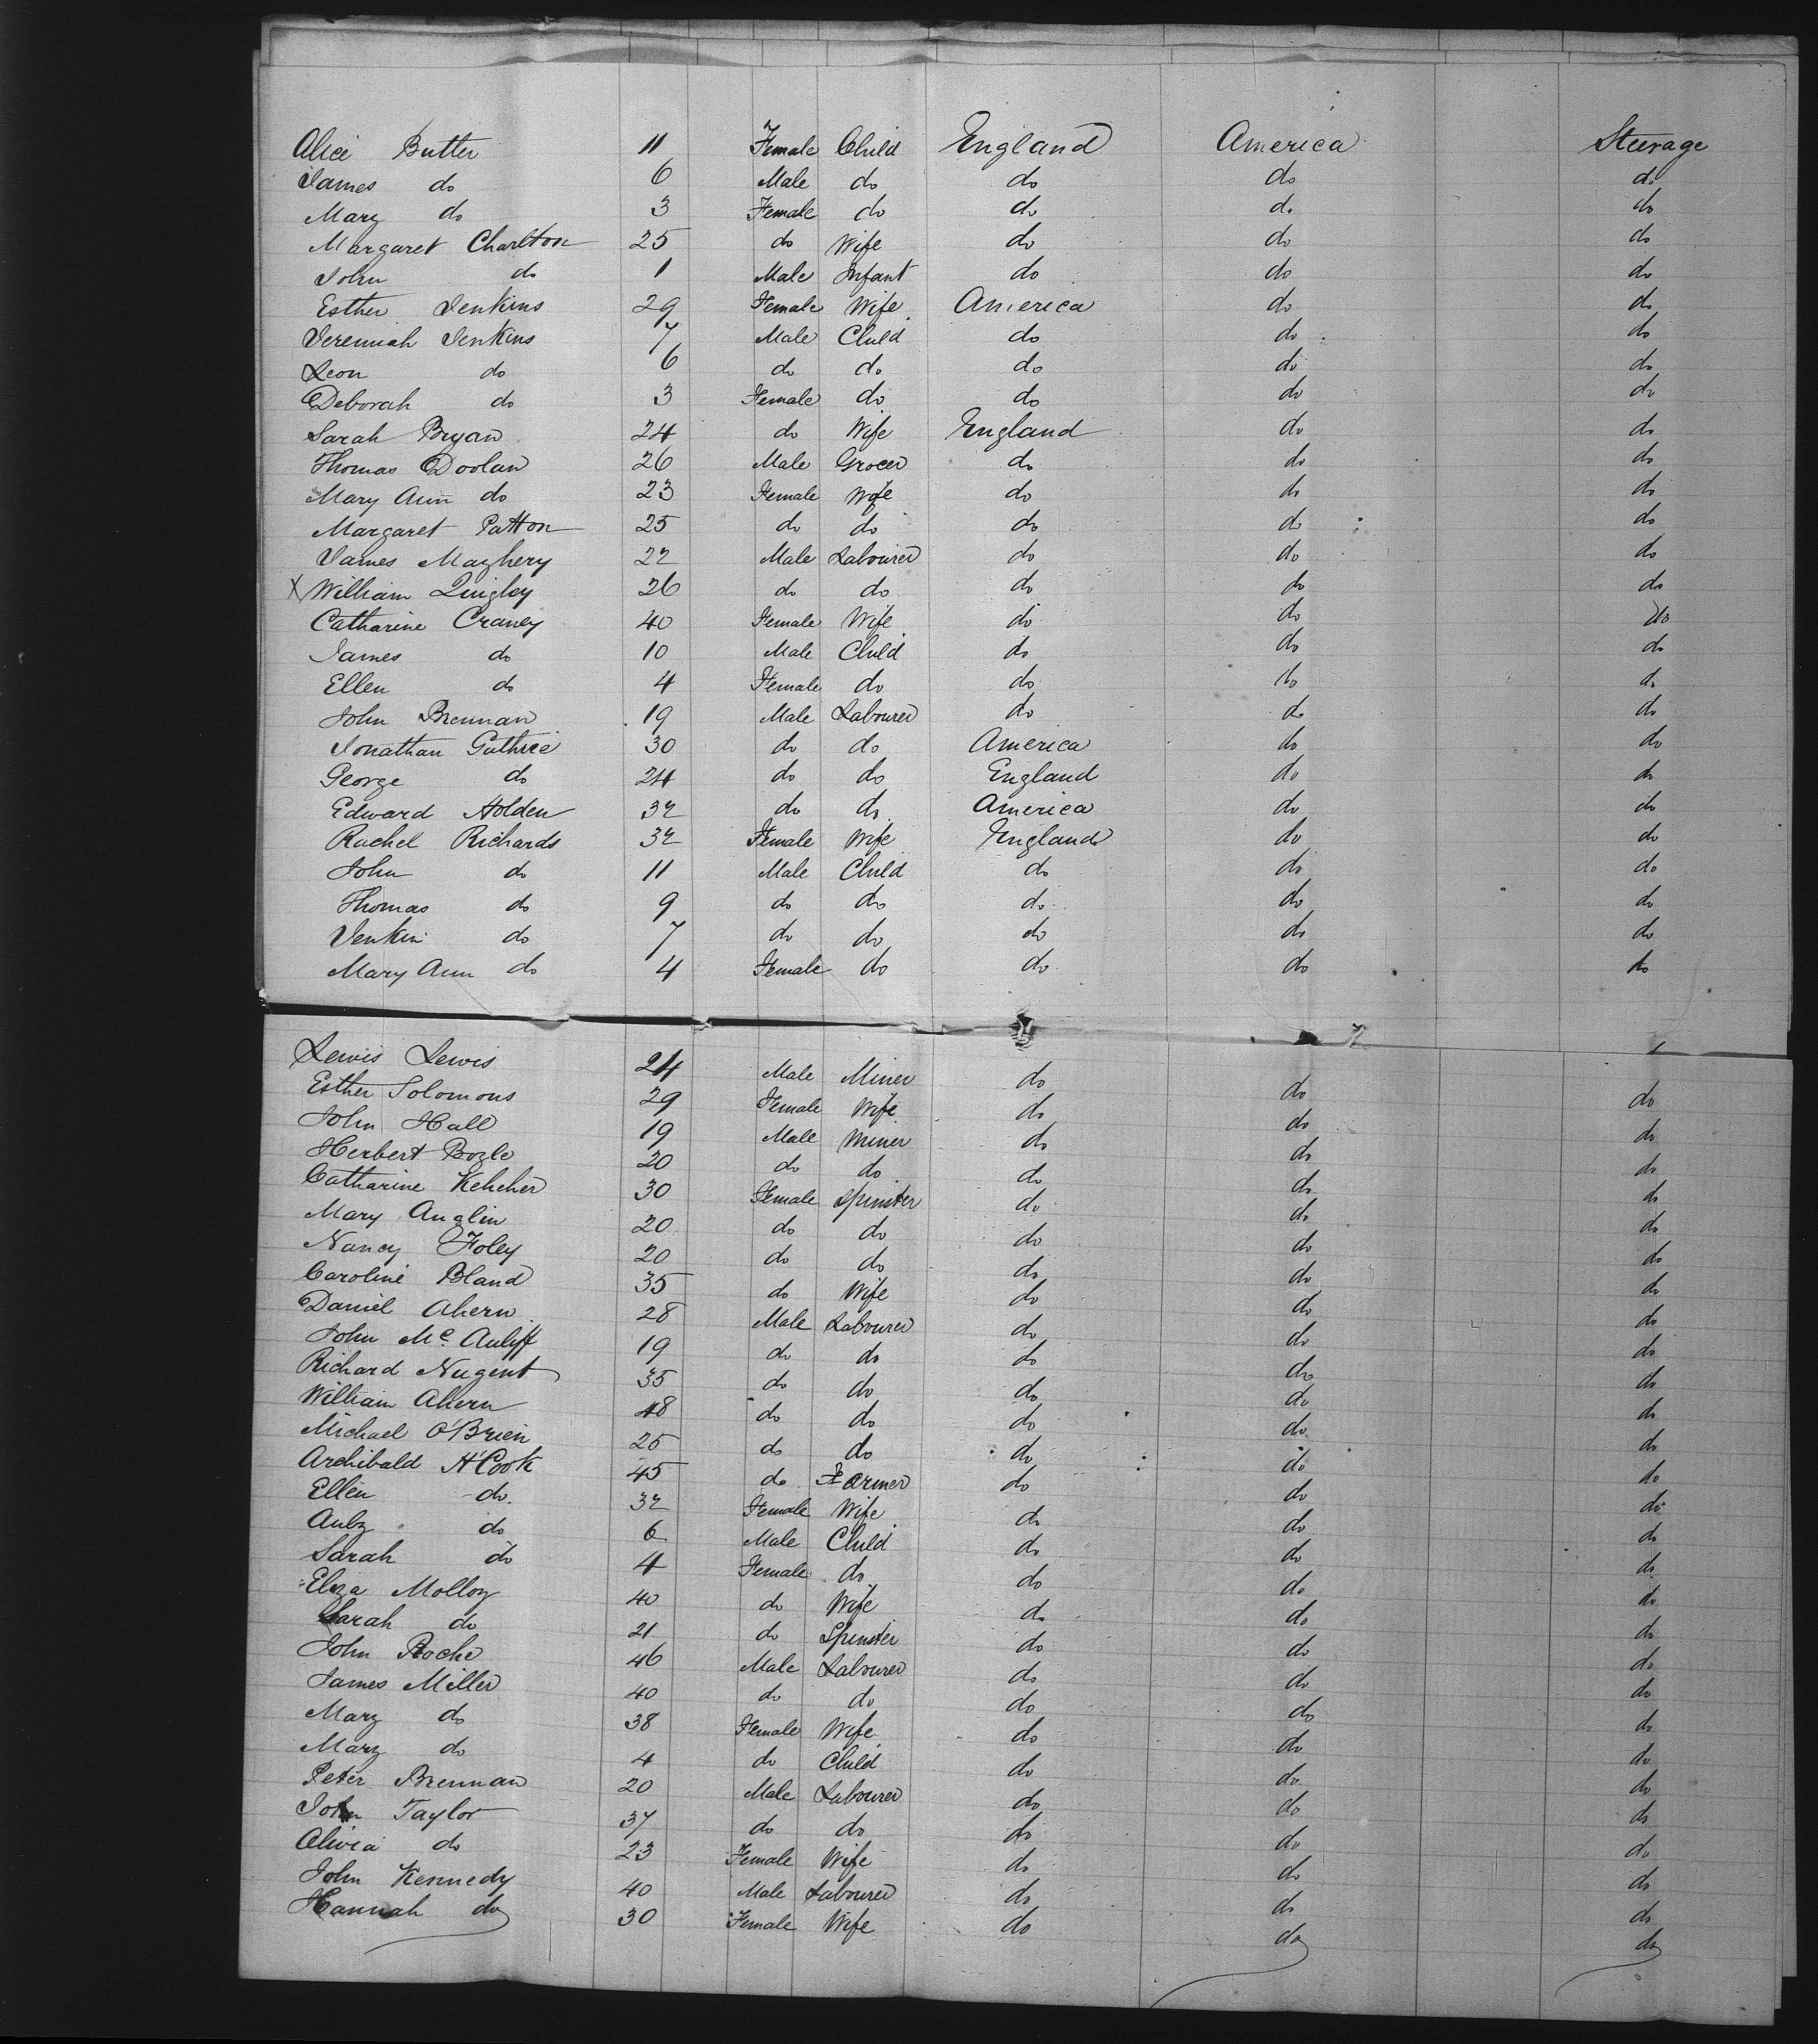 Alice Butter 11 Female Child England America Steerage
James do 6 Male do do do do
Mary do 3 Female do do do do
Margaret Charlton 25 do Wife do do do
John do 1 Male Infant do do do
Esther Jenkins 29 Female Wife America do do
Jeremiah Jenkins 7 Male Child do do do
Leon do 6 do do do do do
Deborah do 3 Female do do do do
Sarah Bryan 24 do Wife England do do
Thomas Doolan 26 Male Grocer do do do
Mary Ann do 23 Female Wife do do do
Margaret Patton 25 do do do do do
James Maghery 22 Male Labourer do do do
X William Quigley 26 do do do do do
Catharine Craney 40 Female Wife do do do
James do 10 Male Child do do do
Ellen do 4 Female do do do do
John Brennan 19 Male Labourer do do do
Jonathan Guthrie 30 do do America do do
George do 24 do do England do do
Edward Holden 32 do do America do do
Rachel Richards 32 Female Wife England do do
John do 11 Male Child do do do
Thomas do 9 do do do do do
Jenkin do 7 do do do do do
Mary Ann do 4 Female do do do do
Lewis Lewis 24 Male Miner do do do
Esther Solomons 29 Female Wife do do do
John Hall 19 Male Miner do do do
Herbert 20 do do do do do
Catharine Keleher 30 Female Spinster do do do
Mary Anglin 20 do do do do do
Nancy Foley 20 do do do do do
Caroline Bland 35 do Wife do do do
Daniel Ahern 28 Male Labourer do do do
John Mc Auliff 19 do do do do do
Richard Nugent 35 do do do do do
William Ahern 48 do do do do do
Michael O'Brien 25 do do do do do
Archibald 45 do Farmer do do do
Ellen do 32 Female Wife do do do
do 6 Male Child do do do
Sarah do 4 Female do do do do
Eliza Molloy 40 do Wife do do do
Sarah do 21 do Spinster do do do
John Roche 46 Male Labourer do do do
James Miller 40 do do do do do
Mary do 38 Female Wife do do do
Mary do 4 do Child do do do
Peter Brennan 20 Male Labourer do do do
John Taylor 37 do do do do do
Olivia do 23 Female Wife do do do
John Kennedy 40 Male Labourer do do do
Hannah do 30 Female Wife do do do